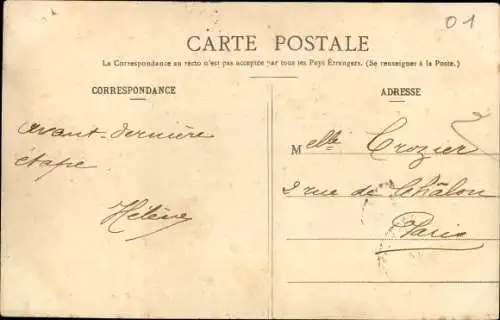 01
CARTE POSTALE
La Correspondance au recto n'est pas acceptée par tous les Pays Étrangers. (Se renseigner à la Poste.)
CORRESPONDANCE
avant-dernière
étape
Hélène
ADRESSE
Melle Crozier
2 rue de Châlon
Paris